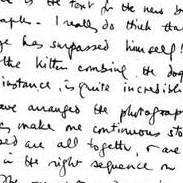 is the text for the new b
I really do think tha
ge has surpassed himself!
the kitten combing the dog
instance, is quite incredibl
ave arranged the photograp
s make me continuous sto
sed are all together, & are
in the right sequence on